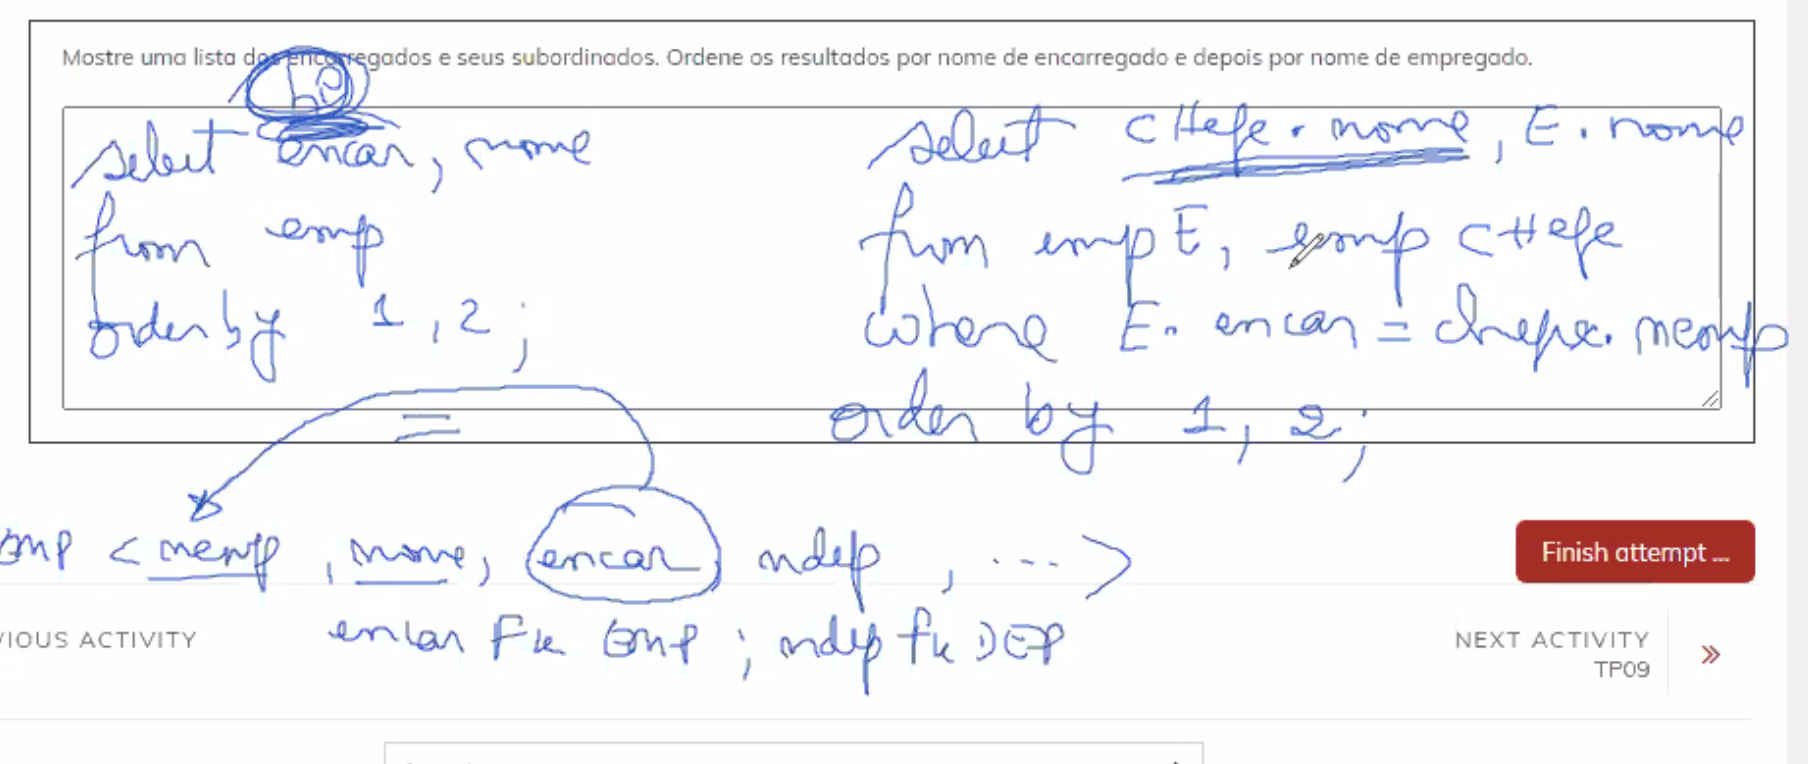 Mostre uma lista dos encarregados e seus subordinados. Ordene os resultados por nome de encarregado e depois por nome de empregado.
select encar, nome
from emp
order by 1, 2;
select CHefe.nome, E.nome
from emp E, emp CHefe
where E.encar = chefe.nemp
order by 1, 2;
=
Emp < nemp, nome, encar ndep, ... >
encar Fk Emp ; ndep fk DEP
Finish attempt ...
VIOUS ACTIVITY
NEXT ACTIVITY
TP09